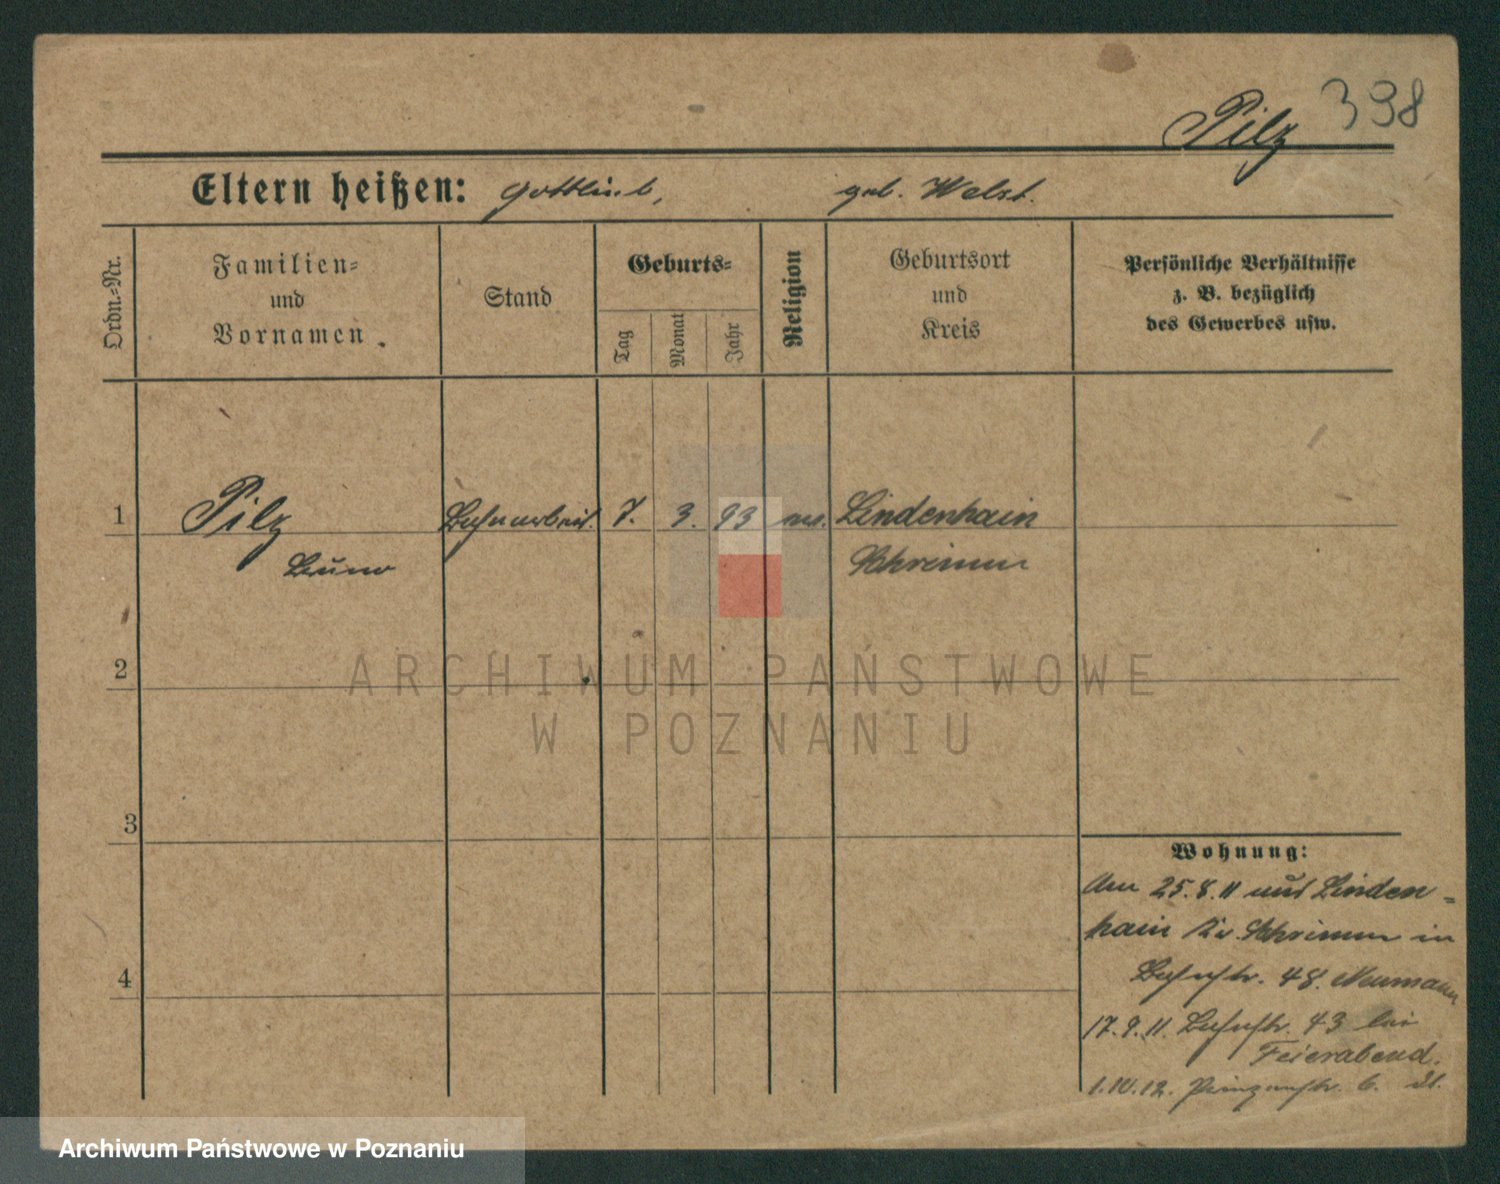 Pilz 398
Eltern heißen: Gottlieb, geb. Welst.
Ordn.-Nr.
Familien-
und
Vornamen
Stand
Geburts-
Tag
Monat
Jahr
Religion
Geburtsort
und
Kreis
Persönliche Verhältnisse
z. B. bezüglich
des Gewerbes usw.
1 Pilz Bahnarbeit. 7. 3. 93 ev. Lindenhain
Bruno Schrimm
2
3
4
Wohnung:
Am 25.8.11 aus Linden-
hain Kr. Schrimm in
Bahnstr. 48. Neumann
17.9.11. Bahnstr. 43 bei
Feierabend.
1.10.12. Prinzenstr. 6.
ARCHIWUM PAŃSTWOWE
W POZNANIU
Archiwum Państwowe w Poznaniu